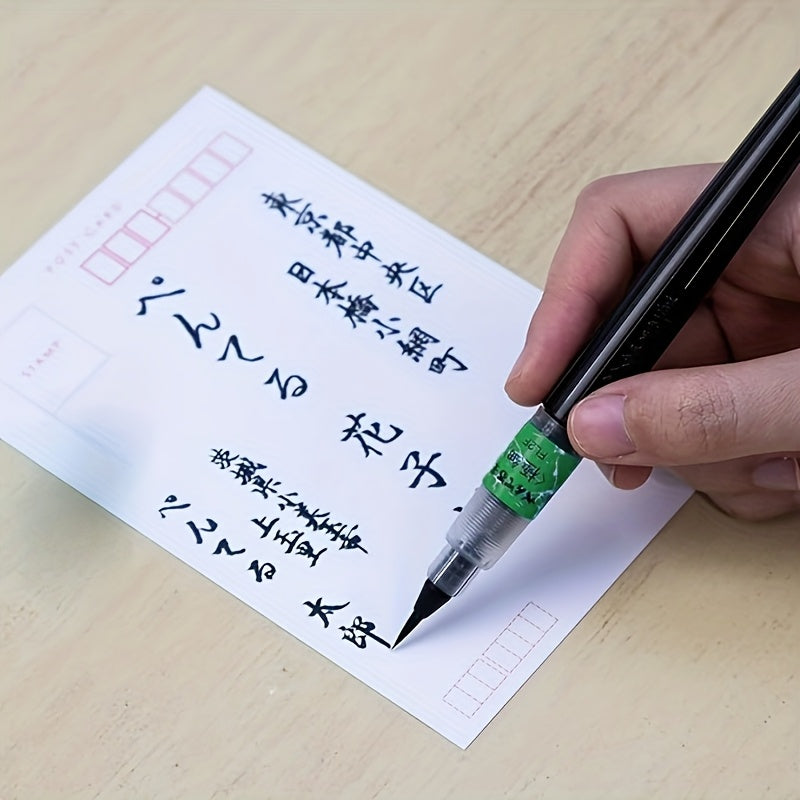 東京都中央区
日本橋小網町
ぺんてる 花子
茨城県小美玉市
上玉里
ぺんてる 太郎
POST CARD
STAMP
極細